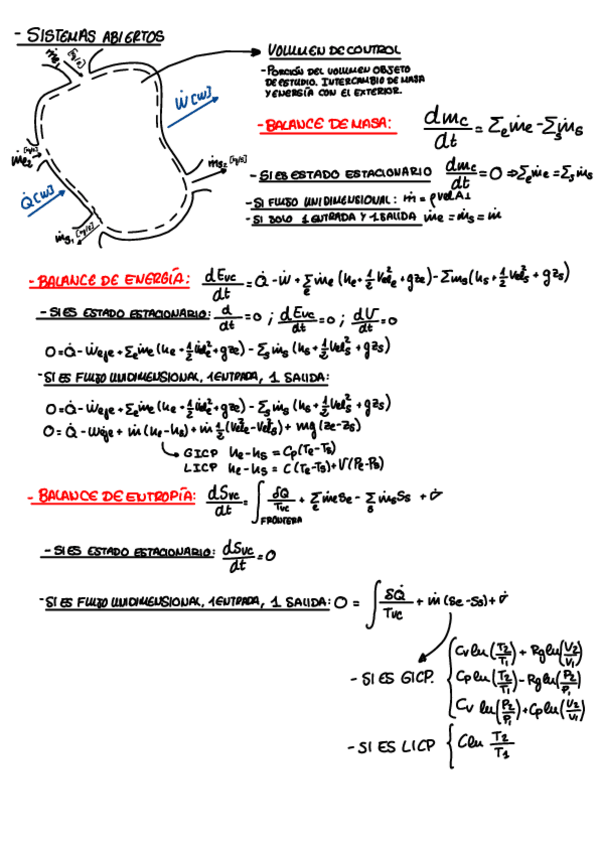 - SISTEMAS ABIERTOS
ṁe₁ [kg/s]
→ VOLUMEN DE CONTROL
- PORCIÓN DEL VOLUMEN OBJETO
DE ESTUDIO. INTERCAMBIO DE MASA
Y ENERGÍA CON EL EXTERIOR.
Ẇ [W]
- BALANCE DE MASA: dmc/dt = Σe ṁe - Σs ṁs
ṁe₂ [kg/s]
ṁs₂ [kg/s]
- SI ES ESTADO ESTACIONARIO dmc/dt = 0 ⇒ Σe ṁe = Σs ṁs
Q̇ [W]
- SI FLUJO UNIDIMENSIONAL: ṁ = ρ vel A⊥
- SI SOLO 1 ENTRADA Y 1 SALIDA ṁe = ṁs = ṁ
ṁs₁ [kg/s]
- BALANCE DE ENERGÍA: dEvc/dt = Q̇ - Ẇ + Σe ṁe (he + 1/2 Vel²e + gze) - Σ ṁs (hs + 1/2 Vel²s + gzs)
- SI ES ESTADO ESTACIONARIO: d/dt = 0 ; dEvc/dt = 0 ; dV/dt = 0
0 = Q̇ - Ẇeje + Σe ṁe (he + 1/2 Vel²e + gze) - Σs ṁs (hs + 1/2 Vel²s + gzs)
- SI ES FLUJO UNIDIMENSIONAL, 1 ENTRADA, 1 SALIDA:
0 = Q̇ - Ẇeje + Σe ṁe (he + 1/2 Vel²e + gze) - Σs ṁs (hs + 1/2 Vel²s + gzs)
0 = Q̇ - Ẇeje + ṁ (he - hs) + ṁ 1/2 (Vel²e - Vel²s) + mg (ze - zs)
↳ GICP he - hs = Cp (Te - Ts)
LICP he - hs = C (Te - Ts) + V (Pe - Ps)
- BALANCE DE ENTROPÍA: dSvc/dt = ∫FRONTERA δQ̇/Tvc + Σe ṁe se - Σs ṁs Ss + σ̇
- SI ES ESTADO ESTACIONARIO: dSvc/dt = 0
- SI ES FLUJO UNIDIMENSIONAL, 1 ENTRADA, 1 SALIDA: 0 = ∫ δQ̇/Tvc + ṁ (se - ss) + σ̇
- SI ES GICP. { Cv ln (T2/T1) + Rg ln (V2/V1)
Cp ln (T2/T1) - Rg ln (P2/P1)
Cv ln (P2/P1) + Cp ln (V2/V1)
- SI ES LICP { C ln T2/T1